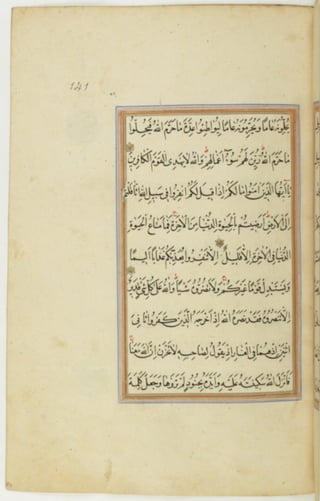 141
يُحِلُّونَهُ عَامًا وَيُحَرِّمُونَهُ عَامًا لِيُوَاطِئُوا عِدَّةَ مَا حَرَّمَ اللَّهُ فَيُحِلُّوا
مَا حَرَّمَ اللَّهُ زُيِّنَ لَهُمْ سُوءُ أَعْمَالِهِمْ وَاللَّهُ لَا يَهْدِي الْقَوْمَ الْكَافِرِينَ
يَا أَيُّهَا الَّذِينَ آمَنُوا مَا لَكُمْ إِذَا قِيلَ لَكُمُ انْفِرُوا فِي سَبِيلِ اللَّهِ اثَّاقَلْتُمْ
إِلَى الْأَرْضِ أَرَضِيتُمْ بِالْحَيَوةِ الدُّنْيَا مِنَ الْآخِرَةِ فَمَا مَتَاعُ الْحَيَوةِ
الدُّنْيَا فِي الْآخِرَةِ إِلَّا قَلِيلٌ إِلَّا تَنْفِرُوا يُعَذِّبْكُمْ عَذَابًا أَلِيمًا
وَيَسْتَبْدِلْ قَوْمًا غَيْرَكُمْ وَلَا تَضُرُّوهُ شَيْئًا وَاللَّهُ عَلَى كُلِّ شَيْءٍ قَدِيرٌ
إِلَّا تَنْصُرُوهُ فَقَدْ نَصَرَهُ اللَّهُ إِذْ أَخْرَجَهُ الَّذِينَ كَفَرُوا ثَانِيَ
اثْنَيْنِ إِذْ هُمَا فِي الْغَارِ إِذْ يَقُولُ لِصَاحِبِهِ لَا تَحْزَنْ إِنَّ اللَّهَ مَعَنَا
فَأَنْزَلَ اللَّهُ سَكِينَتَهُ عَلَيْهِ وَأَيَّدَهُ بِجُنُودٍ لَمْ تَرَوْهَا وَجَعَلَ كَلِمَةَ